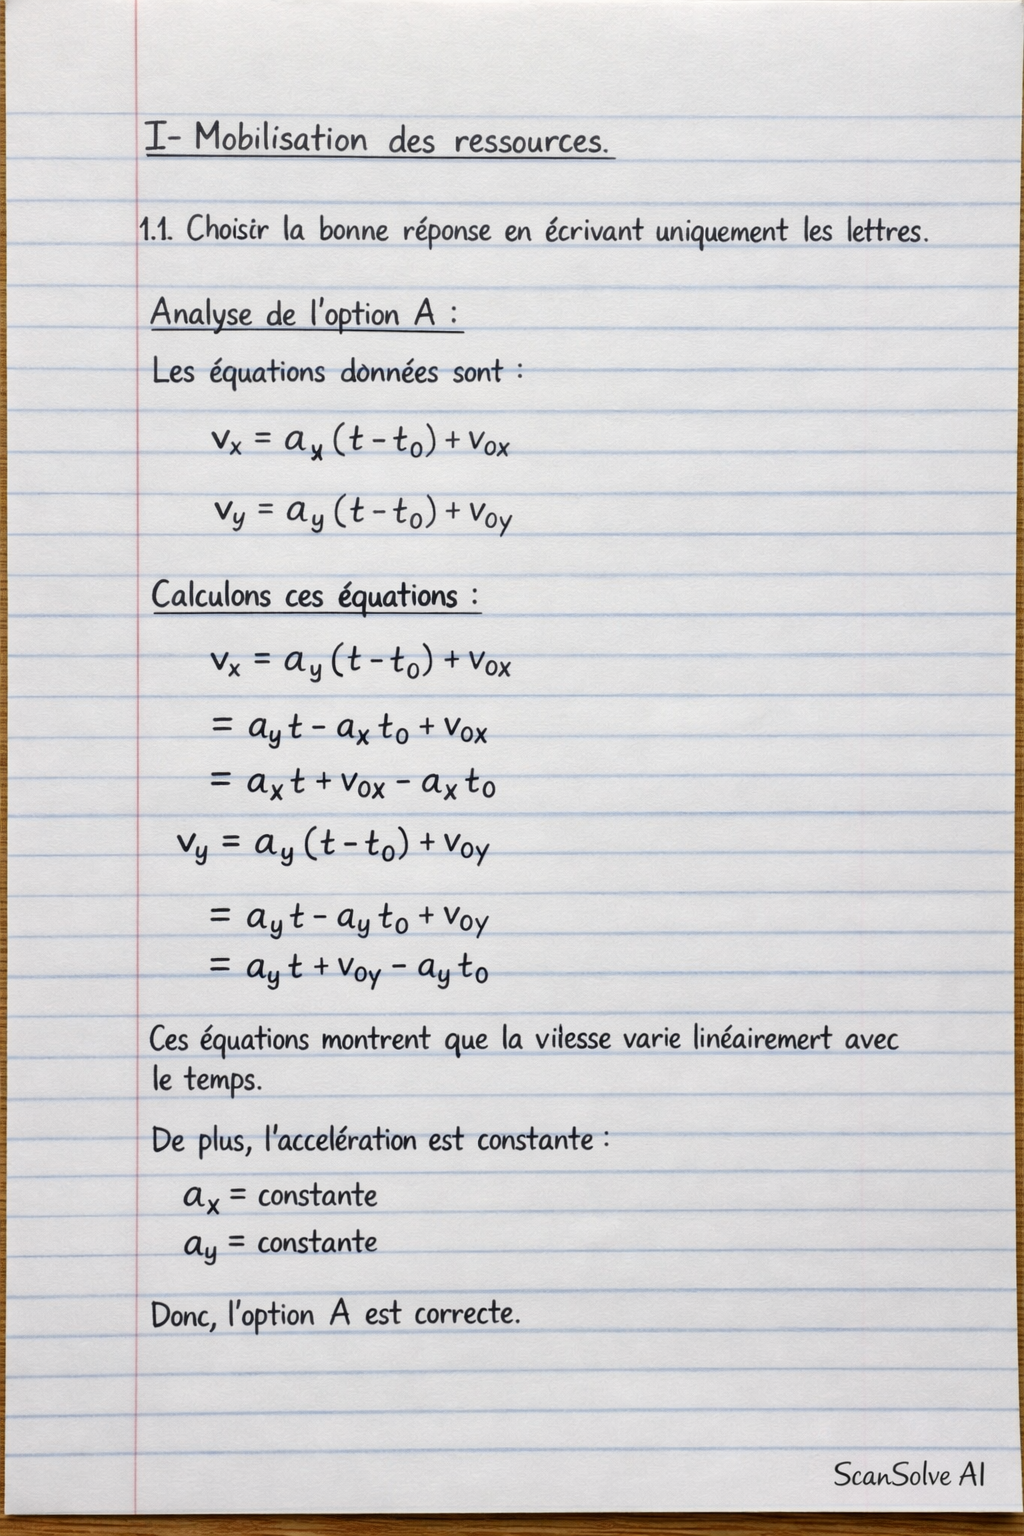 I- Mobilisation des ressources.
1.1. Choisir la bonne réponse en écrivant uniquement les lettres.
Analyse de l'option A :
Les équations dònnées sont :
vₓ = aₓ (t - t₀) + v₀ₓ
v_y = a_y (t - t₀) + v₀y
Calculons ces équations :
vₓ = a_y (t - t₀) + v₀ₓ
= a_y t - aₓ t₀ + v₀ₓ
= aₓ t + v₀ₓ - aₓ t₀
v_y = a_y (t - t₀) + v₀y
= a_y t - a_y t₀ + v₀y
= a_y t + v₀y - a_y t₀
Ces équations montrent que la vilesse varie linéairemert avec
le temps.
De plus, l'accelération est constante :
aₓ = constante
a_y = constante
Donc, l'option A est correcte.
ScanSolve AI